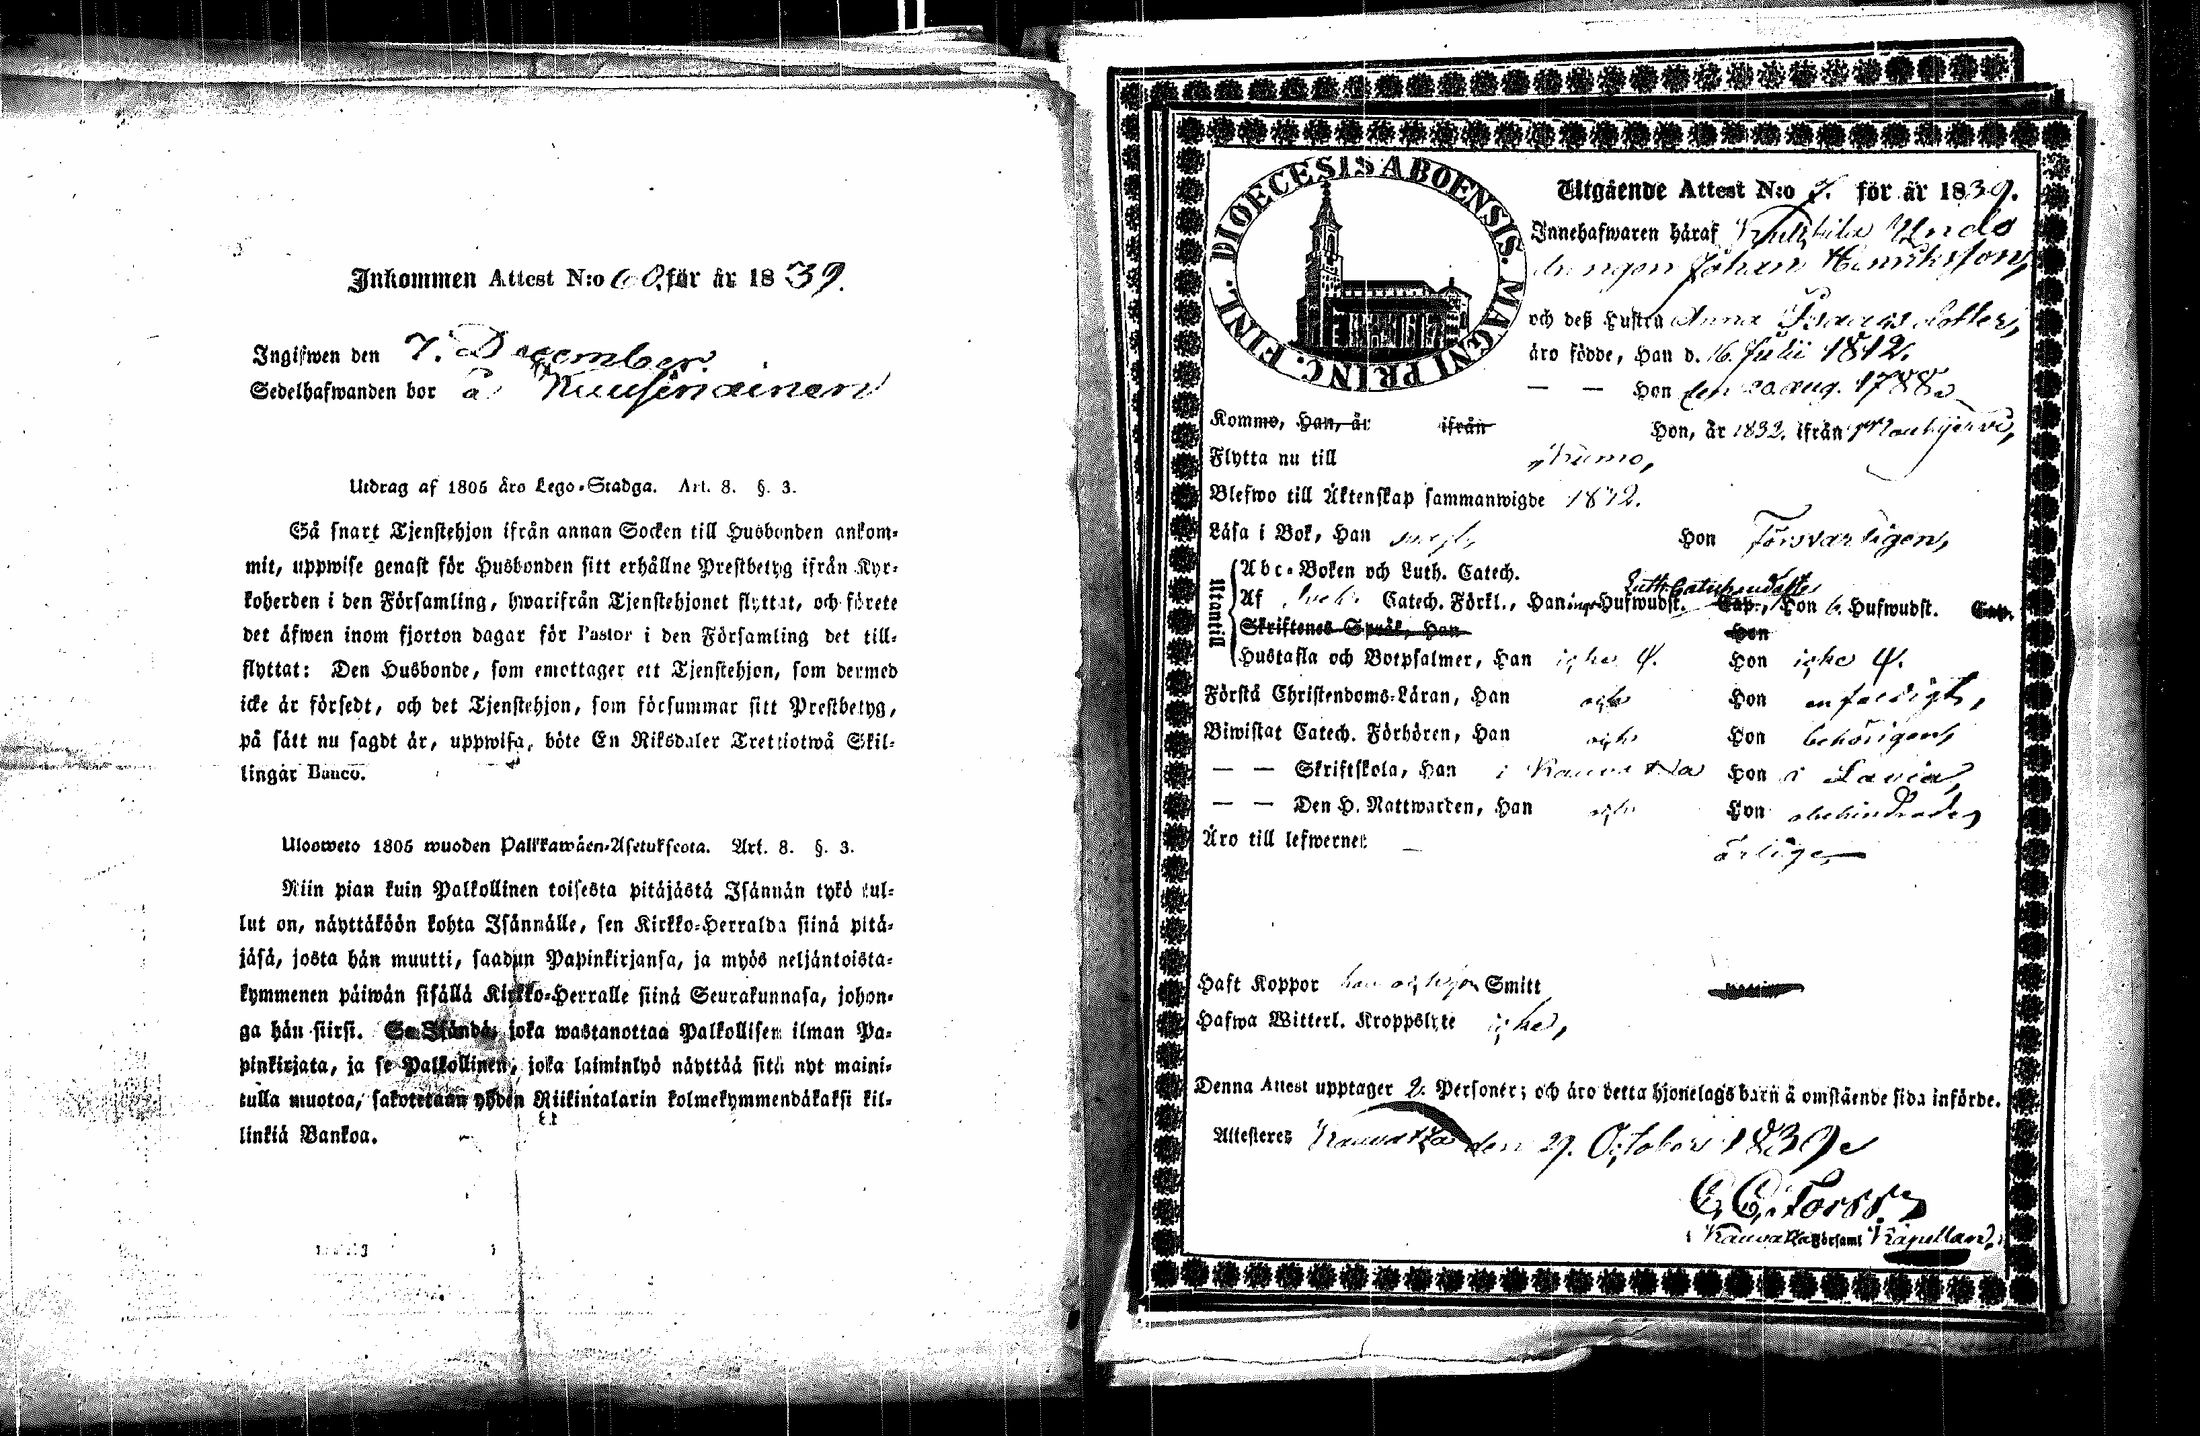 Inkommen Attest N:o 60. för år 1839.
Ingifwen den 7. December.
Sedelhafwanden bor å
Utdrag af 1805 års Lego-Stadga. Art. 8. §. 3.
Så snart Tjenstehjon ifrån annan Socken till Husbonden ankom-
mit, uppwise genast för Husbonden sitt erhållne Prestbetyg ifrån Kyr-
koherden i den Församling, hwarifrån Tjenstehjonet flyttat, och förete
det äfwen inom fjorton dagar för Pastor i den Församling det till-
flyttat: Den Husbonde, som emottager ett Tjenstehjon, som dermed
icke är försedt, och det Tjenstehjon, som försummar sitt Prestbetyg,
på sätt nu sagdt är, uppwisa, böte En Riksdaler Trettiotwå Skil-
lingar Banco.
Ulosweto 1805 wuoden Palkkawäen-Asetuksesta. Art. 8. §. 3.
Niin pian kuin Palkollinen toisesta pitäjästä Isännän tykö tul-
lut on, näyttäköön kohta Isännälle, sen Kirkko-Herralda siinä pitä-
jäsä, josta hän muutti, saadun Papinkirjansa, ja myös neljäntoista-
kymmenen päiwän sisällä Kirkko-Herralle siinä Seurakunnasa, johon-
ga hän siirsi. Se Isändä, joka wastanottaa Palkollisen ilman Pa-
pinkirjata, ja se Palkollinen, joka laiminlyö näyttää sitä nyt maini-
tulla muotoa, sakotetaan yhden Riikintalarin kolmekymmendäkaksi kil-
linkiä Bankoa.
DIOECESIS ABOENSIS. MAGNI PRINC. FINL.
Utgående Attest N:o 7. för år 1839.
Innehafwaren häraf
drengen Johan Henriksson,
och deß Hustru Anna Isaacs dotter,
äro födde, Han d. 16. Julii 1812.
— — Hon den 20 aug. 1788.
Kommo, Han, år ifrån Hon, år 1832. ifrån Mouhijervi,
Flytta nu till Kumo,
Blefwo till Äktenskap sammanwigde 1832.
Läsa i Bok, Han Hon Försvarligen,
Utantill
Abc-Boken och Luth. Catech.
Af Catech. Förkl., Han Hufwudst. Cap., Hon 6. Hufwudst. Cap.
Skriftenes Språk, Han Hon
Hustafla och Botpsalmer, Han icke Hon icke
Förstå Christendoms-Läran, Han och Hon enfaldigt,
Biwistat Catech. Förhören, Han och Hon behörigen,
— — Skriftskola, Han i Kauvatsa Hon i Lavia,
— — Den H. Nattwarden, Han och Hon obehindrade,
Äro till lefwernet — ärlige,
Haft Koppor han och hon Smitt
Hafwa Witterl. Kroppslyte icke,
Denna Attest upptager 2. Personer; och äro detta hjonelags barn å omstående sida införde.
Attesteres Kauvatsa den 29. October 1839.
Kauvatsa Församl Kapellan.